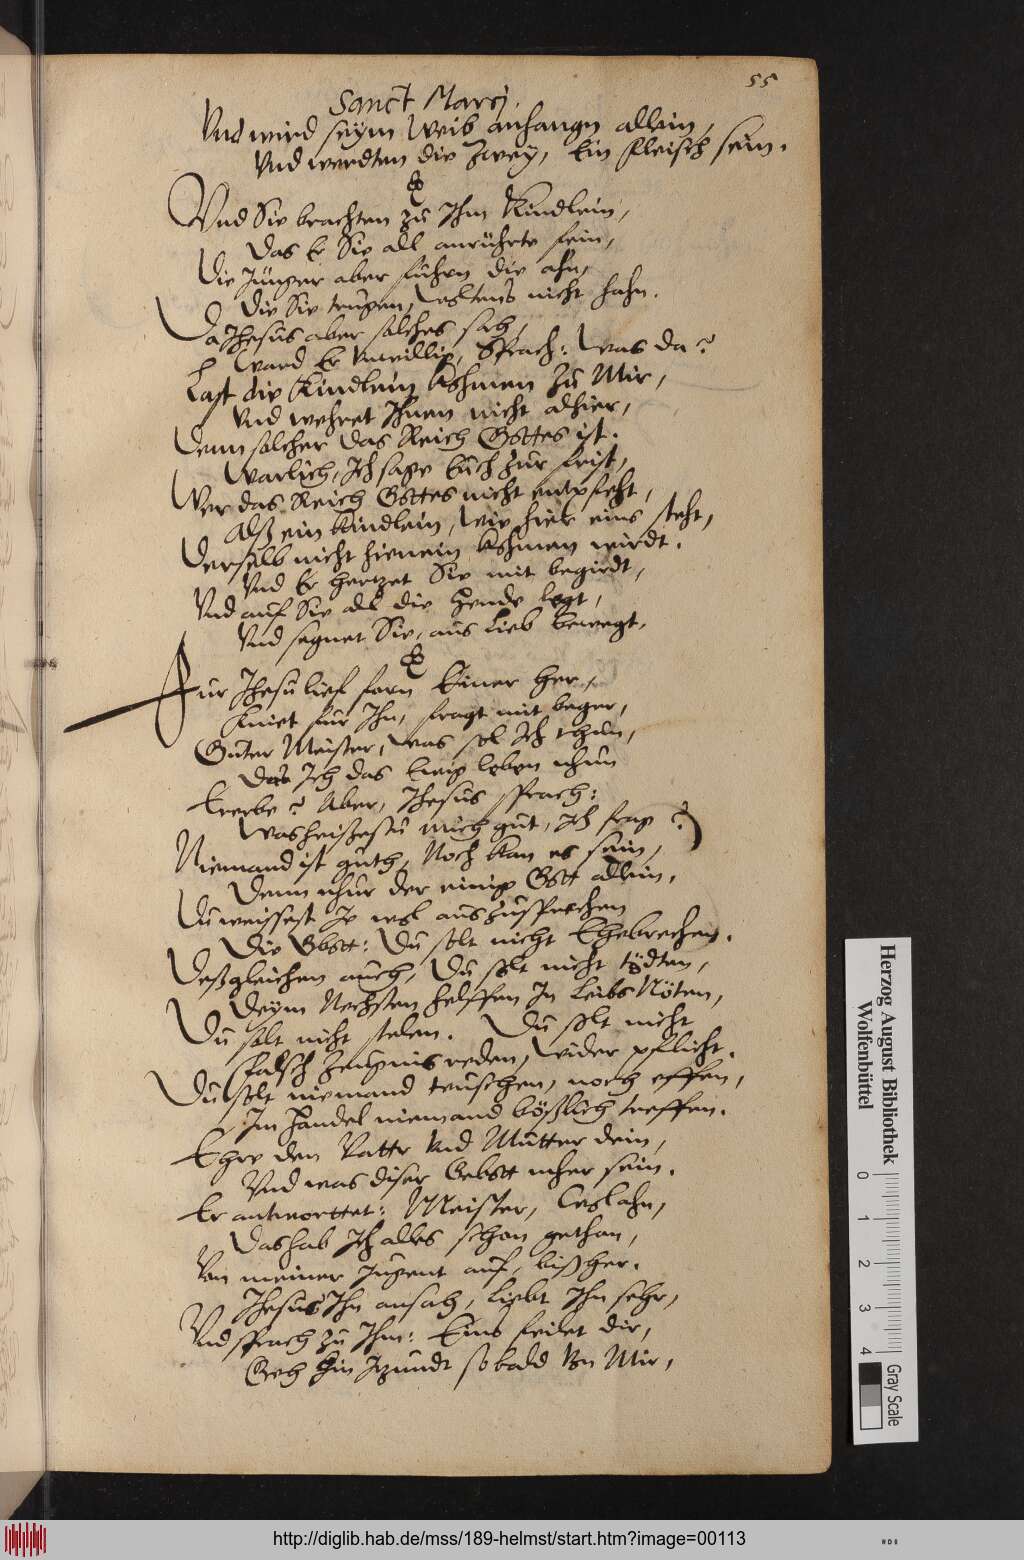 55
Sanct Marcj.
Vnd wird seym Weib anhangn allein,
Vnd werdten die Zwey, Ein fleisch sein.
Vnd Sie brachten zu Ihm Kindlein,
Das Er Sie all anrührte fein,
Die Jünger aber fuhrn die ahn,
Die Sie trugen, woltens nicht hahn.
Da Jhesus aber solches sah,
Ward Er vnwillig, Sprach: Was da?
Last die Kindlein kohmen zu Mir,
Vnd wehret Ihnen nicht alhier,
Denn solcher das Reich Gottes ist.
Warlich, Ich sage Euch zur frist,
Wer das Reich Gottes nicht entpfeht,
Alß ein Kindlein, wie hier eins steht,
Derselb nicht hienein kohmen wirdt.
Vnd Er hertzet Sie mit begirdt,
Vnd auf Sie all die Hende legt,
Vnd segnet Sie, aus Lieb bewegt,
Fur Jhesu lief forn Einer her,
Kniet für Ihn, fragt mit beger,
Guter Meister, was sol Ich thun,
Das Ich das Ewig leben nhun
Ererbe? Aber, Jhesus sprach:
Was heissestu mich gut, Ich frag?
Niemand ist guth, Noch kan es sein,
Denn nhur der einige Gott allein.
Du weissest Je wol auszusprechen
Die Gbott: Du solt nicht Ehebrechen.
Deßgleichen auch, Du solt nicht tödten,
Deym Nechsten helffen In leibs Nöten,
Du solt nicht stelen. Du solt nicht
Falsch Zeugnis reden, wider pflicht.
Du solt niemand teuschen, noch effen,
Im Handel niemand bößlich treffen.
Ehre den Vattr vnd Mutter dein,
Vnd was diser Gebott mher sein.
Er antworttet: Meister, Wolahn,
Das hab Ich alles schon gethan,
Von meiner Jugent auf, bißher.
Jhesus Ihn ansah, liebt Ihn sehr,
Vnd sprach zu Ihm: Eins feilet dir,
Geh hin Itzundt so bald Von Mir,
Herzog August Bibliothek
Wolfenbüttel
0 1 2 3 4
Gray Scale
http://diglib.hab.de/mss/189-helmst/start.htm?image=00113